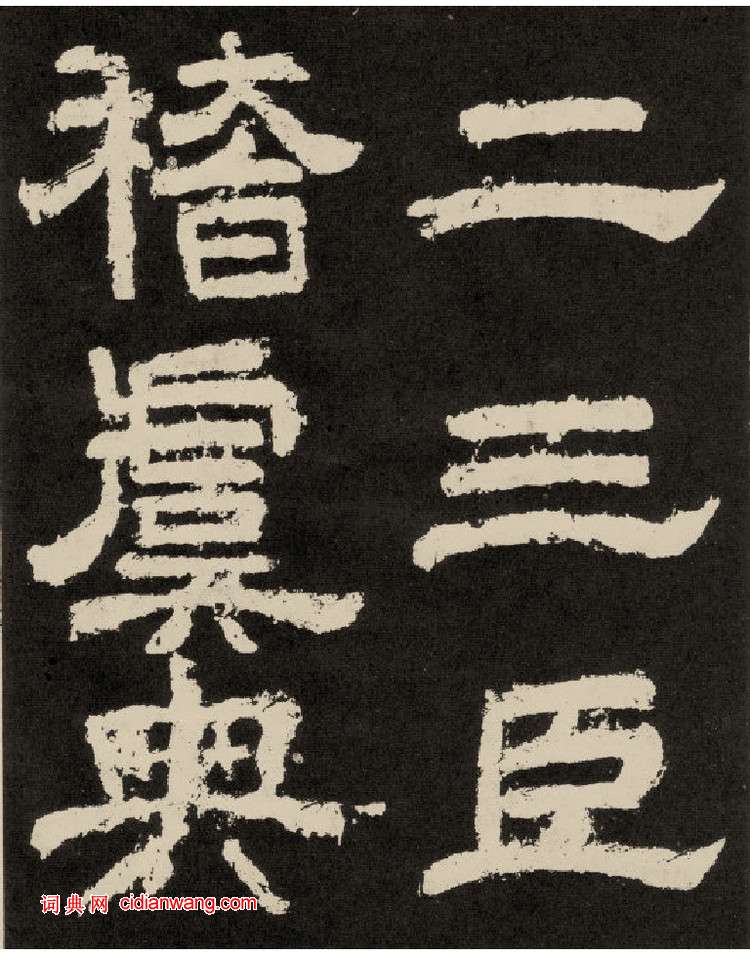 二三臣
稽虞典
词典网 cidianwang.com